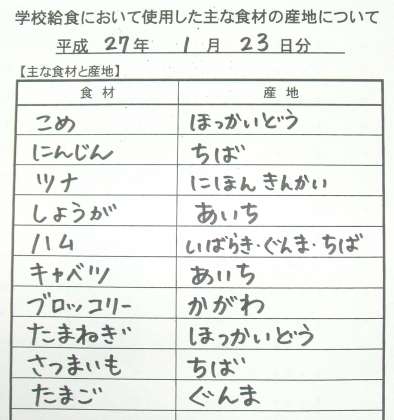 学校給食において使用した主な食材の産地について
平成 27年 1月 23日分
【主な食材と産地】
食材 産地
こめ ほっかいどう
にんじん ちば
ツナ にほんきんかい
しょうが あいち
ハム いばらき・ぐんま・ちば
キャベツ あいち
ブロッコリー かがわ
たまねぎ ほっかいどう
さつまいも ちば
たまご ぐんま